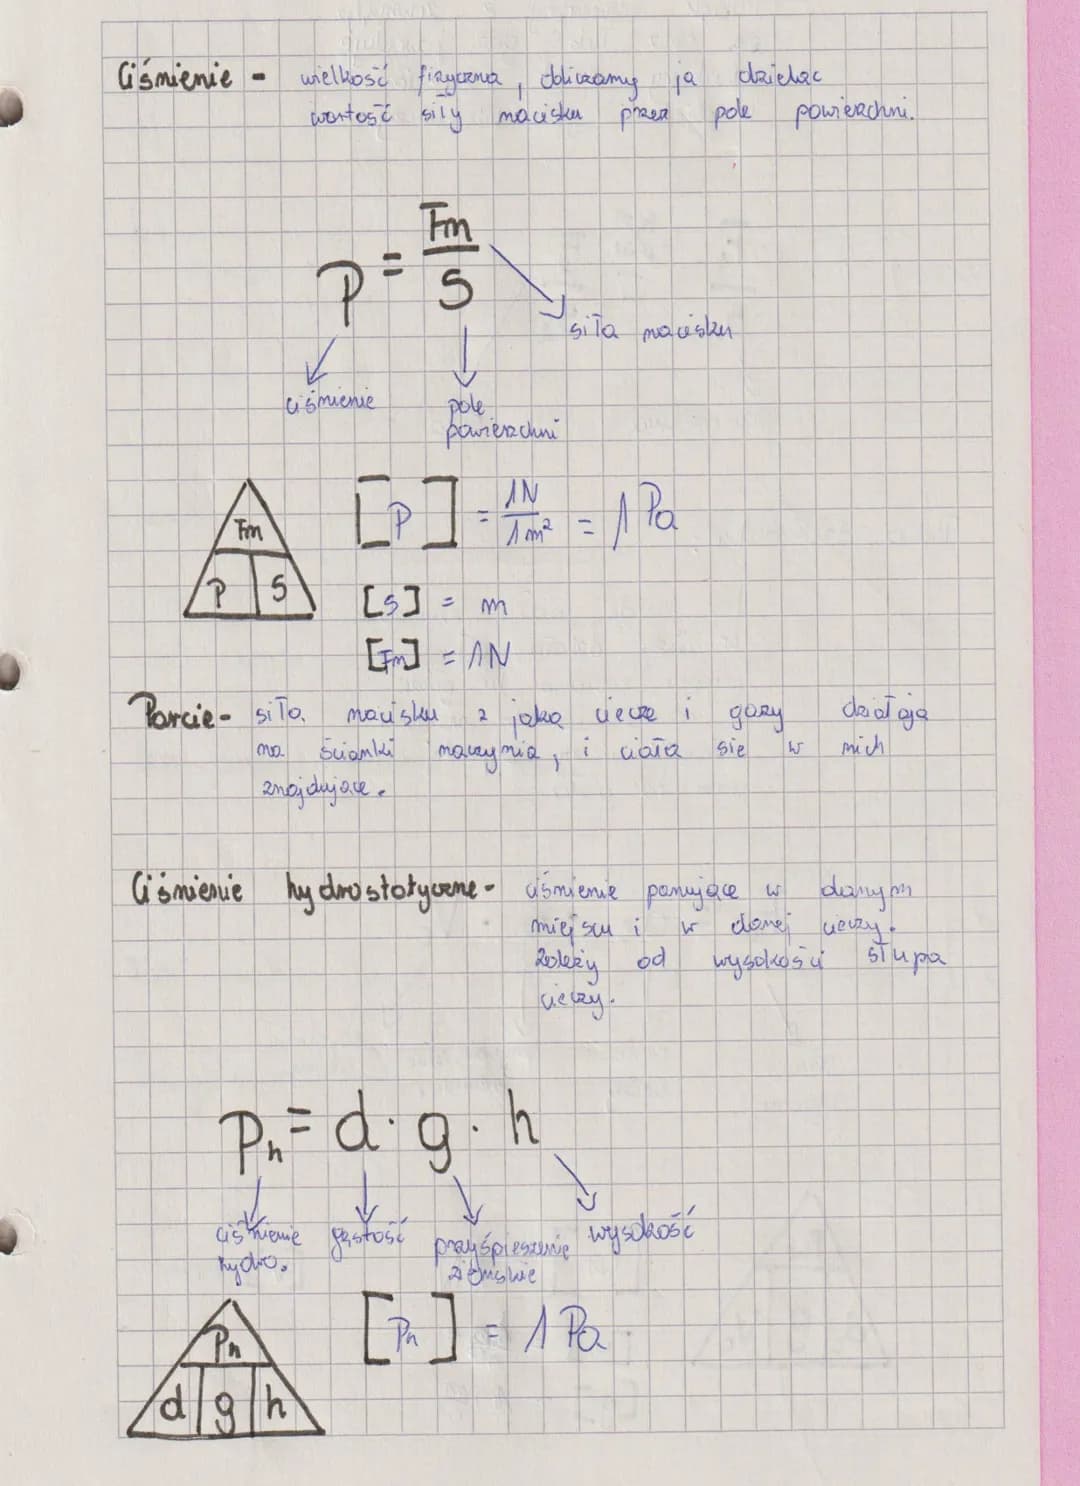 Ciśnienie - wielkość fizyczna, obliczamy ją dzieląc
wartość siły nacisku przez pole powierzchni.
p = Fn / S
siła nacisku
ciśnienie
pole
powierzchni
Fn
P S
[P] = 1N / 1m² = 1 Pa
[S] = m
[Fn] = 1N
Parcie - siła nacisku z jaką ciecze i gazy działają
na ścianki naczynia, i ciała się w nich
znajdujące.
Ciśnienie hydrostatyczne - ciśnienie panujące w danym
miejscu i w danej cieczy.
Zależy od wysokości słupa
cieczy.
Pn = d · g · h
ciśnienie gęstość przyśpieszenie wysokość
hydro. ziemskie
Pn
d g h
[Pn] = 1 Pa